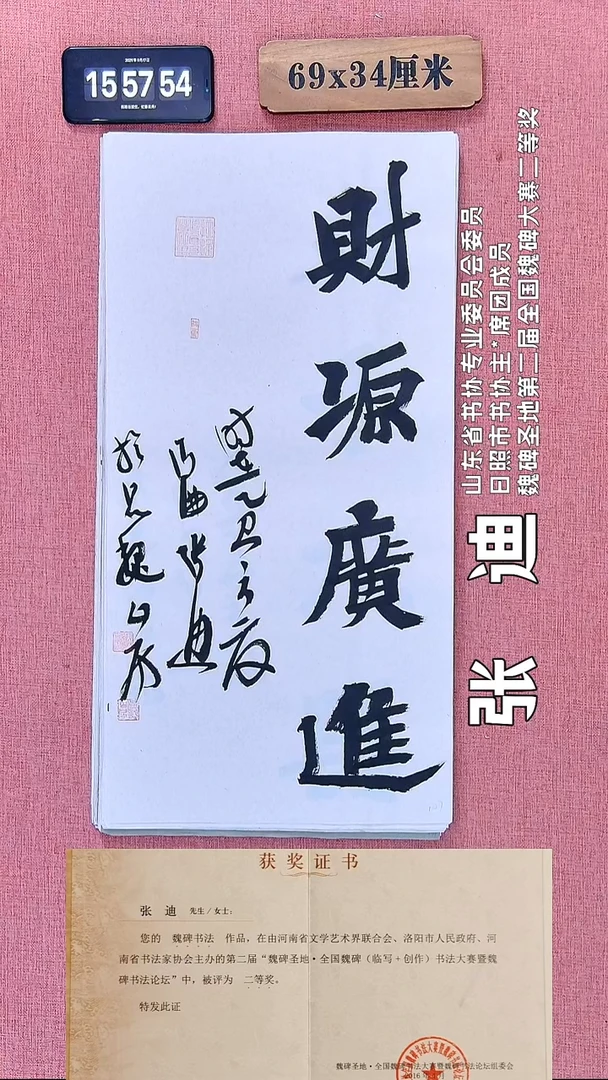 15 57 54
69x34厘米
財源廣進
山东省书协专业委员会委员
日照市书协主*席团成员
魏碑圣地第二届全国魏碑大赛二等奖
张 迪
获奖证书
张 迪 先生/女士:
您的 魏碑书法 作品，在由河南省文学艺术界联合会、洛阳市人民政府、河
南省书法家协会主办的第二届“魏碑圣地·全国魏碑（临写+创作）书法大赛暨魏
碑书法论坛”中，被评为 二等奖。
特发此证
魏碑圣地·全国魏碑书法大赛暨魏碑书法论坛组委会